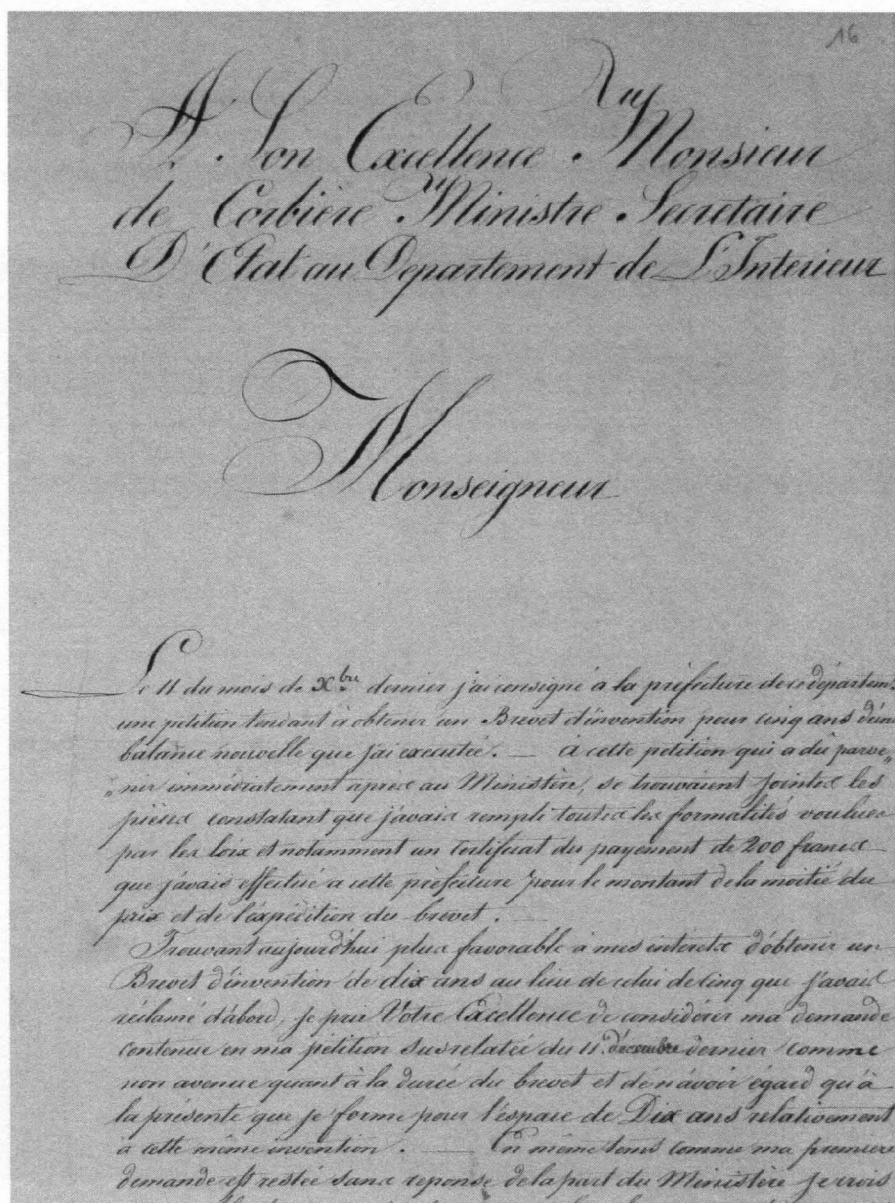 16
A Son Excellence Monsieur
de Corbière Ministre Secretaire
D'Etat au Departement de L'Interieur
Monseigneur
Le 11 du mois de Xbre dernier j'ai consigné a la préfecture de ce départemt
une petition tendant à obtenir un Brevet d'invention pour cinq ans d'un
balance nouvelle que j'ai executée. — à cette petition qui a dû parve„
„nir immédiatement après au Ministère, se trouvaient jointes les
pièces constatant que j'avais rempli toutes les formalités voulues
par les loix et notamment un certificat du payement de 200 francs
que j'avais effectué a cette préfecture pour le montant de la moitié du
prix et de l'expédition du brevet. —
Trouvant aujourd'hui plus favorable à mes interets d'obtenir un
Brevet d'invention de dix ans au lieu de celui de cinq que j'avais
réclamé d'abord, je prie Votre Excellence de considérer ma demande
contenue en ma pétition susrelatée du 11 décembre dernier comme
non avenue quant à la durée du brevet et de n'avoir égard qu'à
la présente que je forme pour l'espace de Dix ans relativement
à cette même invention. — En même tems comme ma premiere
demande est restée sans reponse de la part du Ministère je crois